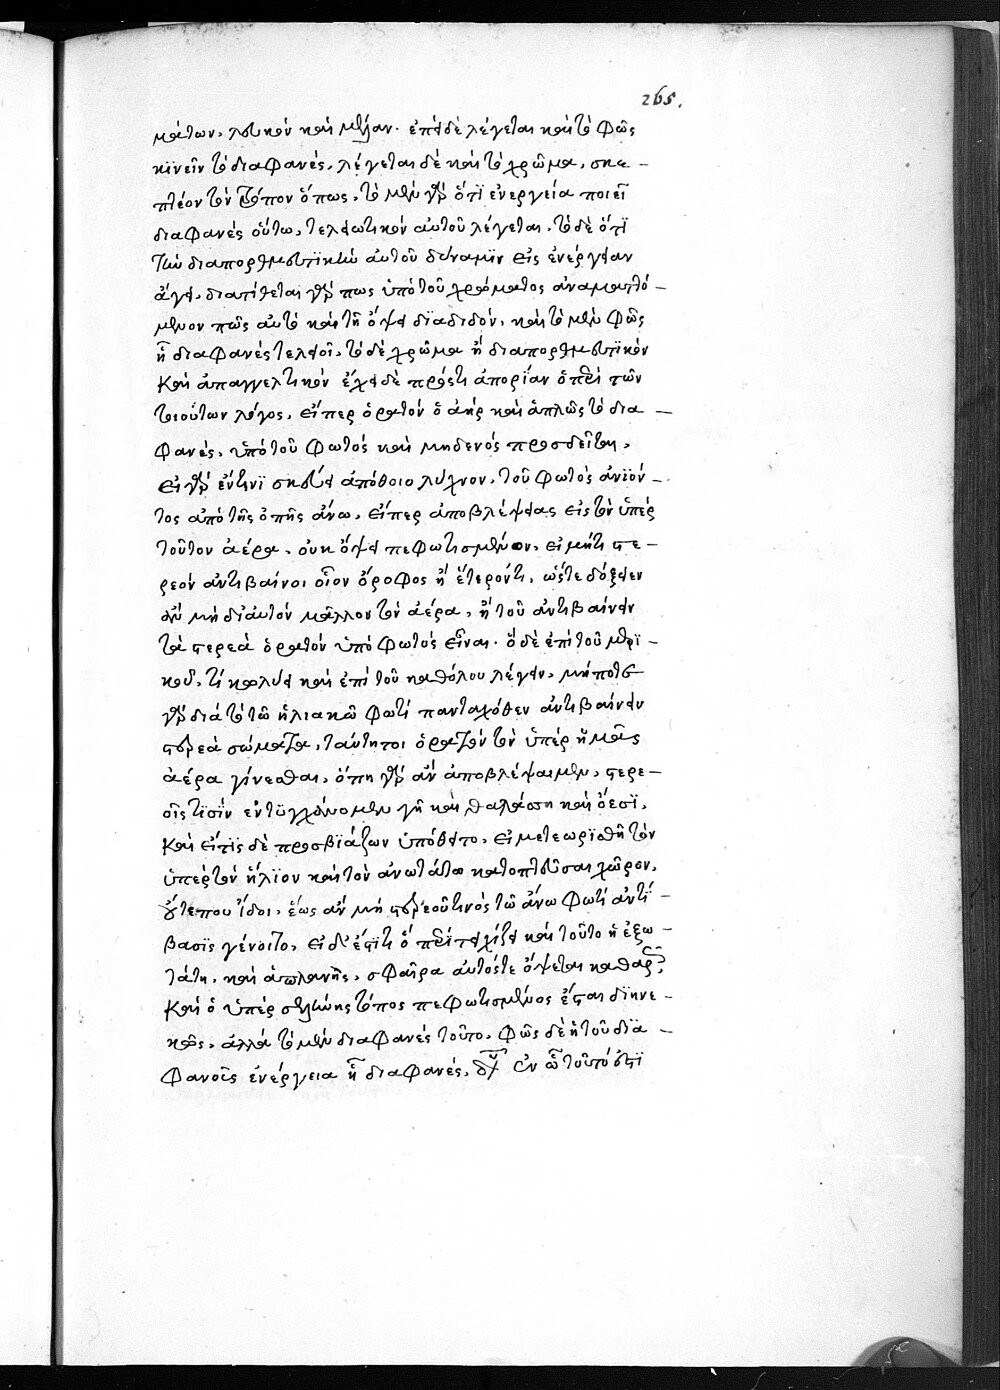 265.
μάτων, λευκὸν καὶ μέλαν. ἐπεὶ δὲ λέγεται καὶ τὸ φῶς
κινεῖν τὸ διαφανές, λέγεται δὲ καὶ τὸ χρῶμα, σκε-
πτέον τὸν τρόπον ὅπως, τὸ μὲν γὰρ ὅτι ἐνεργείᾳ ποιεῖ
διαφανὲς οὕτω, τελειωτικὸν αὐτοῦ λέγεται, τὸ δὲ ὅτι
τὴν διαπορθμευτικὴν αὐτοῦ δύναμιν εἰς ἐνέργειαν
ἄγει, διατίθεται γάρ πως ὑπὸ τοῦ χρώματος ἀναματτό-
μενον πῶς αὐτὸ καὶ τῇ ὄψει διαδιδόν, καὶ τὸ μὲν φῶς
ᾗ διαφανὲς τελειοῖ, τὸ δὲ χρῶμα ᾗ διαπορθμευτικὸν
καὶ ἀπαγγελτικὸν ἔχει δὲ πρόσεστι ἀπορίαν ὁ περὶ τῶν
τοιούτων λόγος, εἴπερ ὁρατὸν ὁ ἀὴρ καὶ ἁπλῶς τὸ δια-
φανές, ὑπὸ τοῦ φωτὸς καὶ μηδενὸς προσδεῖται,
εἰ γὰρ ἔν τινι σκεύει ἀπόθοιο λύχνον, τοῦ φωτὸς ἀνιόν-
τος ἀπὸ τῆς ὀπῆς ἄνω, εἴπερ ἀποβλέψειας εἰς τὸν ὑπὲρ
τοῦτον ἀέρα, οὐκ ὄψει πεφωτισμένον, εἰ μή τι στε-
ρεὸν ἀντιβαίνοι οἷον ὄροφος ἢ ἕτερόν τι, ὥστε δόξειεν
ἂν μὴ δι' αὐτὸν μᾶλλον τὸν ἀέρα, ἢ τοῦ ἀντιβαίνειν
τὰ στερεὰ ὁρατὸν ὑπὸ φωτὸς εἶναι. ὃ δὲ ἐπὶ τοῦ μερι-
κοῦ, τί κωλύει καὶ ἐπὶ τοῦ καθόλου λέγειν, μήποτε
γὰρ διὰ τὸ τῷ ἡλιακῷ φωτὶ πανταχόθεν ἀντιβαίνειν
στερεὰ σώματα, ταύτῃ τοι ὁρατὸν τὸν ὑπὲρ ἡμᾶς
ἀέρα γίνεσθαι, ὅπῃ γὰρ ἂν ἀποβλέψαιμεν, στερε-
οῖς τισὶν ἐντυγχάνομεν γῇ καὶ θαλάσσῃ καὶ ὄρεσι,
καὶ εἴ τις δὲ προσβιάζων ὑπόθοιτο, εἰ μετεωρισθῇ τὸν
ὑπὲρ τὸν ἥλιον καὶ τὸν ἀνωτάτω κατοπτεῦσαι χῶρον,
οὔτε που ἴδοι, ἕως ἂν μὴ στερεοῦ τινὸς τῷ ἄνω φωτὶ ἀντί-
βασις γένοιτο, εἰ δ' ἐστί τι ὃ περιτειχίζει καὶ τοῦτο ἡ ἐξω-
τάτη, καὶ ἀπλανὴς, σφαῖρα αὐτός τε ὄψεται καθαρῶς
καὶ ὁ ὑπὲρ σελήνης τόπος πεφωτισμένος ἔσται διηνε-
κῶς, ἀλλὰ τὸ μὲν διαφανὲς τοῦτο, φῶς δὲ ἡ τοῦ δια-
φανοῦς ἐνέργεια ᾗ διαφανές, ἐν ᾧ τοῦτό ἐστι